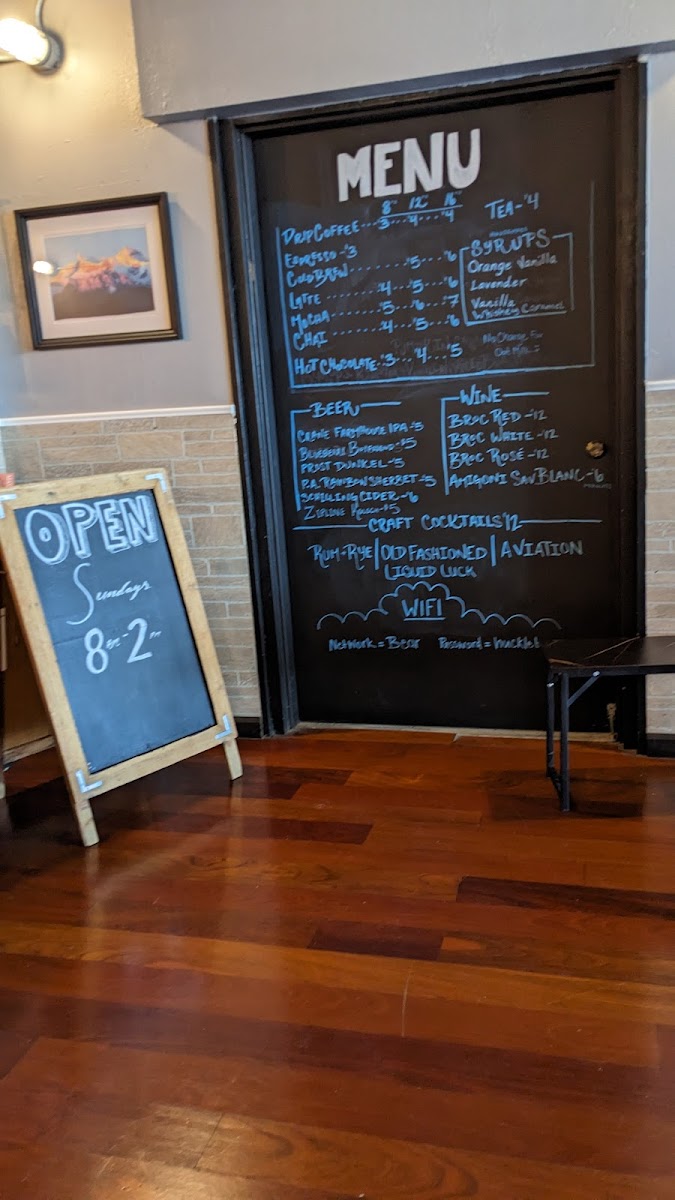 MENU
8oz 12oz 16oz
DRIP COFFEE···3···4···$4
TEA-$4
ESPRESSO-$3
COLD BREW·········$5···$6
LATTE·······4···$5···$6
MOCHA········$5···$6···$7
CHAI········4···$5···$6
HOT CHOCOLATE·$3···4···$5
SYRUPS
Orange Vanilla
Lavender
Vanilla
Whiskey Caramel
No Charge For
Oat Milk
BEER
CRANE FARMHOUSE IPA-$5
BLUEBERRY -$5
PROST DUNKEL-$5
P.A. RAINBOW SHERBET-$5
SCHILLING CIDER-$6
ZIPLINE -$5
WINE
BROC RED-$12
BROC WHITE-$12
BROC ROSÉ-$12
AMIGONI SAV BLANC-$6
CRAFT COCKTAILS $12
RUM+RYE|OLD FASHIONED|AVIATION
LIQUID LUCK
WIFI
Network = Bear Password =
OPEN
Sundays
8am-2pm